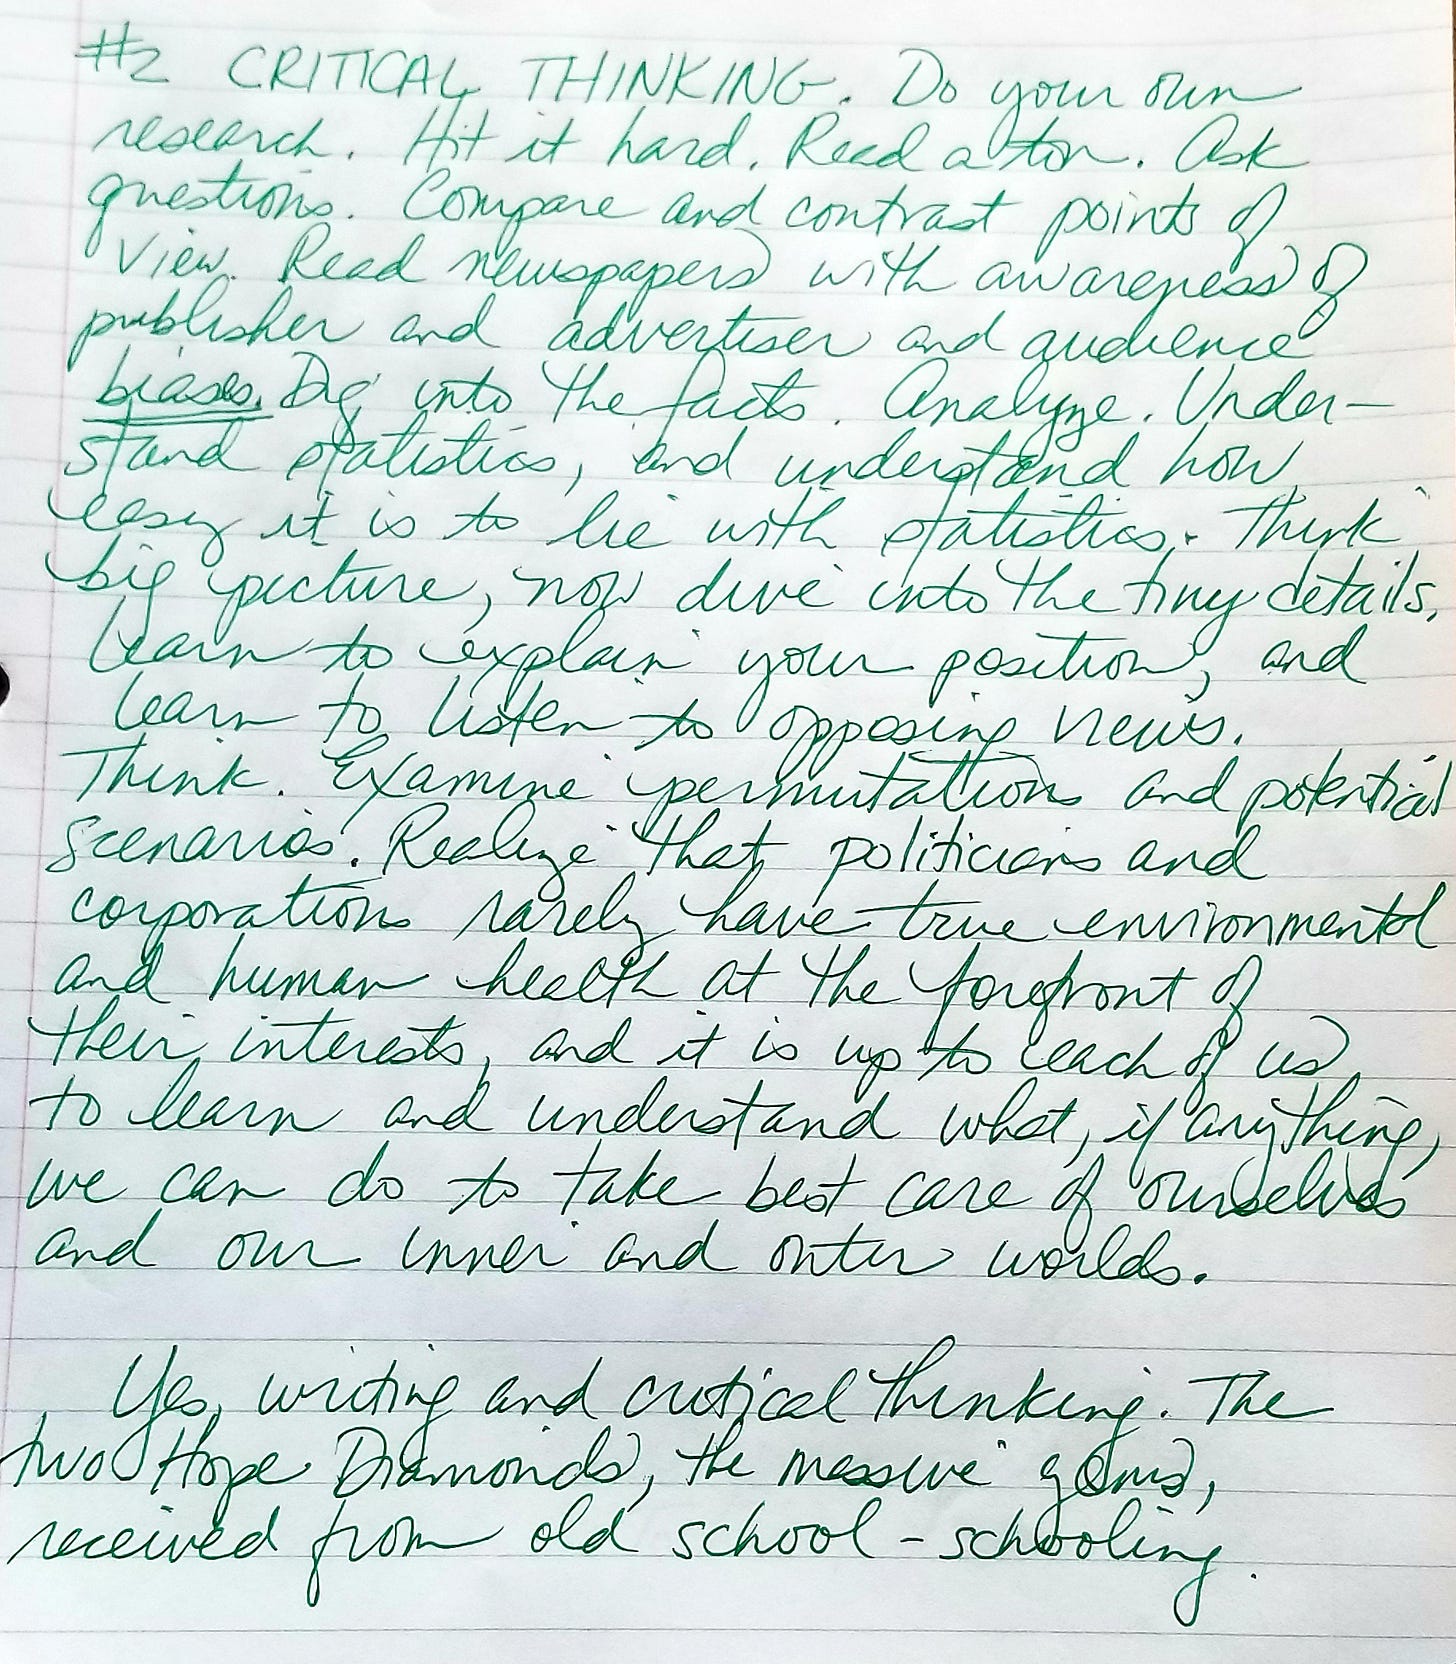 #2 CRITICAL THINKING. Do your own
research. Hit it hard. Read a ton. Ask
questions. Compare and contrast points of
view. Read newspapers with awareness of
publisher and advertiser and audience
biases. Dig into the facts. Analyze. Under-
stand statistics, and understand how
easy it is to lie with statistics. Think
big picture, now dive into the tiny details,
learn to explain your position, and
learn to listen to opposing views.
Think. Examine permutations and potential
scenarios. Realize that politicians and
corporations rarely have true environmental
and human health at the forefront of
their interests, and it is up to each of us
to learn and understand what, if anything,
we can do to take best care of ourselves
and our inner and outer worlds.
Yes, writing and critical thinking. The
two Hope Diamonds, the massive gems,
received from old school-schooling.